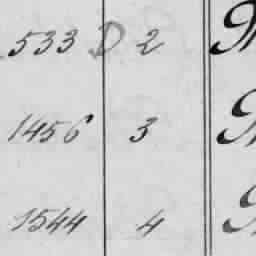 533 D 2
1456 3
1544 4